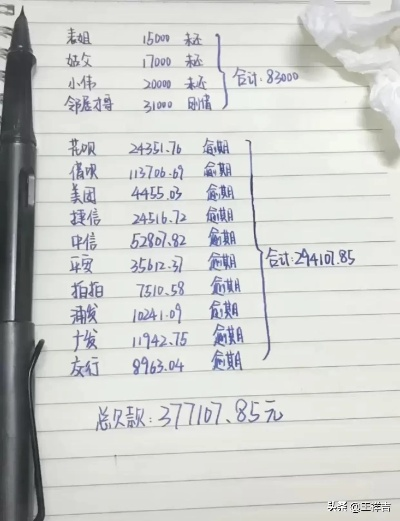 表姐 15000 未还
姑父 17000 未还
小伟 20000 未还
邻居才哥 31000 刚借
合计:83000
花呗 24351.76 逾期
借呗 113706.69 逾期
美团 4455.03 逾期
捷信 24516.72 逾期
中信 52807.82 逾期
平安 35612.37 逾期
拍拍 7510.58 逾期
浦发 10241.09 逾期
广发 11942.75 逾期
交行 8963.04 逾期
合计:294107.85
总欠款:377107.85元
头条@王祥吉